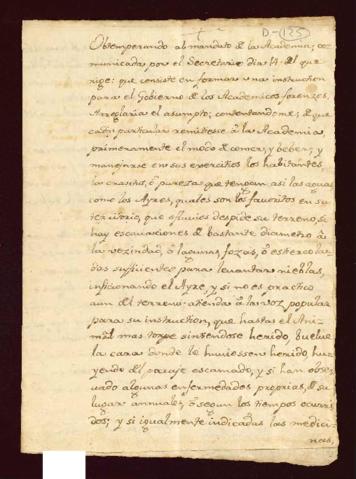 D-(125)
Obtemperando al mandato de la Academia; co-
municada, por el Secretario dia 14 del que
rige: que consiste en formar vna instruccion
para el Gobierno de los Academicos forenses,
Arreglaria el asumpto; contentandome; de que
cada particular remitiesse à la Academia
primeramente el modo de comer, y beber; y
manejarse en sus exercitios los habitantes
la crasitud, ô pureza que tengan asi las aguas
como los Ayres, quales son los favoritos en su
territorio, que efluvios despide su terreno, si
hay escavaciones de bastante diametro à
la vezindad, ô lagunas, fozas, ô estercola-
dos sufficientes para levantar nieblas,
inficionando el Ayre, y si no es practico
aun del terreno: atienda à la voz popular
para su instruccion, que hasta el Ani-
mal mas torpe sintiendose herido, buelve
la cara donde le huviessen herido, hu-
yendo del paraje escarmado, y si han obser-
vado algunas enfermedades proprias, de su
lugar annuales, ô segun los tiempos ocurri-
dos; y si igualmente indicadas las medici-
nas,